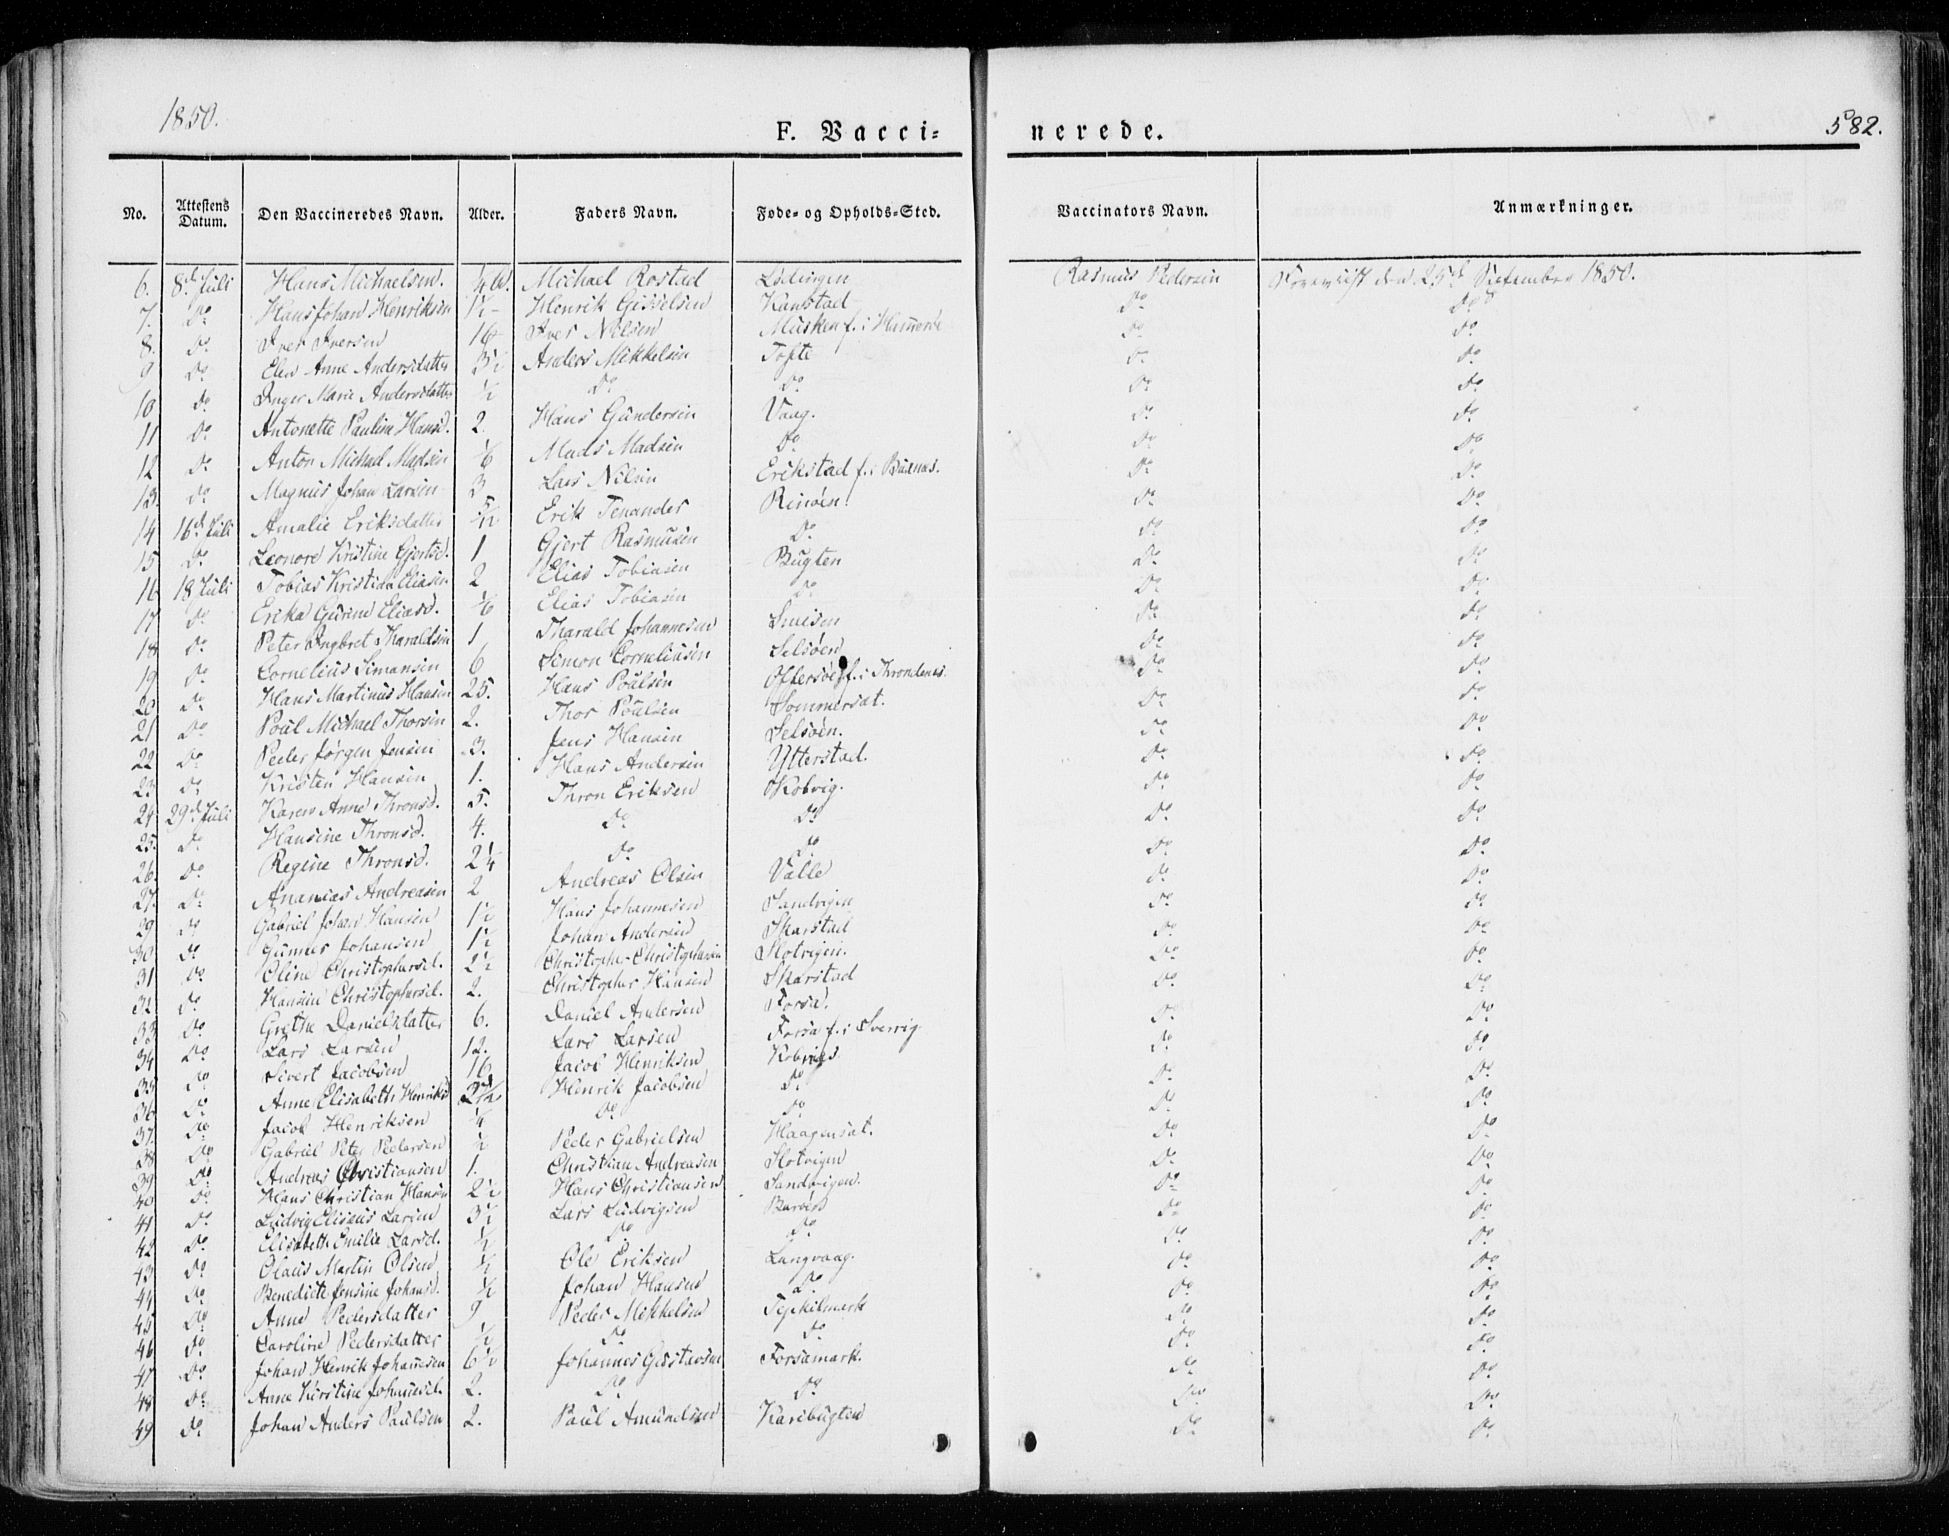 1850.
F. Vacci=
nerede.
582.
No. Attestens Datum. Den Vaccineredes Navn. Alder. Faders Navn. Føde- og Opholds-Sted. Vaccinators Navn. Anmærkninger.
6. 8d Juli Hans Michaelsen. 1/4 Michael Rostad Lødingen Rasmus Pedersen Foreviist den 25d September 1850.
7. Do Hans Johan Henriksen 1 1/2 Henrik Gisselsen Kanstad Do Do
8. Do Iver Iversen 16 Iver Nilsen Musken f. i Do Do
9 Do Elen Anne Andersdatter 3 1/2 Anders Mikkelsen Tofte Do Do
10 Do Inger Marie Andersdatter 1/2 Do Do Do Do
11 Do Antonette Pauline Hansd. 2. Hans Gundersen Vaag. Do Do
12 Do Anton Michael Madsen 1/6 Mads Madsen Do Do Do
13. Do Magnus Johan Larsen 3 Lars Nilsen Erikstad f. i Buxnæs. Do Do
14 16d Juli Amalie Eriksdatter 5/12 Erik Tenander Rinøen. Do Do
15 Do Leonore Kristine Gjertsd. 1 Gjert Rasmusen Do Do Do
16 18 Juli Tobias Kristian Eliasen 2 Elias Tobiasen Bugten Do Do
17 Do Erika Gurine Eliasd. 1/6 Elias Tobiasen Do Do Do
18 Do Peter Ingbret Tharaldsen 1 Tharald Johannesen Do Do
19 Do Cornelius Simonsen 6 Simon Corneliusen Selsøen Do Do
20 Do Hans Martinus Hansen 25. Hans Poulsen Oftersøe f. i Throndenes. Do Do
21 Do Poul Michael Thorsen 2. Thor Poulsen Sommersæt. Do Do
22 Do Peder Jørgen Jensen 3. Jens Hansen Selsøen. Do Do
23 Do Kristen Hansen 1. Hans Andersen Ytterstad. Do Do
24 29d Juli Karen Anne Thronsd. 5. Thron Eriksen Kobvig. Do Do
25. Do Hansine Thronsd. 4. Do Do Do Do
26. Do Regine Thronsd. 2 1/4 Do Do Do Do
27. Do Ananias Andreasen 2 Andreas Olsen Valle Do Do
29 Do Gabriel Johan Hansen 1 1/2 Hans Johannesen Sandvigen Do Do
30 Do Gunner Johansen 1 1/2 Johan Andersen Skarstad Do Do
31 Do Oline Christophersd. 2 1/2 Christopher Christophersen Slotvigen. Do Do
32 Do Hansine Christophersd. 2. Christopher Hansen Skarstad Do Do
33 Do Grethe Danielsdatter 6. Daniel Andersen Forsa. Do Do
34 Do Lars Larsen 12. Lars Larsen Forsa f. i Sverrig Do Do
35 Do Sivert Jacobsen 16 Jacob Henriksen Kobvig Do Do
36 Do Anne Elisabeth Henriksd Henrik Jacobsen Do Do Do
37. Do Jacob Henriksen 1/4 Do Do Do Do
38 Do Gabriel Peter Pedersen 1/2 Peder Gabrielsen Haagensæt. Do Do
39 Do Andreas Christiansen 1. Christian Andreasen Slotvigen Do Do
40 Do Hans Christian Hansen 2 1/2 Hans Christiansen Sandvigen. Do Do
41 Do Ludvig Elisæus Larsen 3 1/2 Lars Ludvigsen Barøen Do Do
42 Do Elisabeth Emilie Larsd. 1/2 Do Do Do Do
43 Do Olaus Martin Olsen 1/2 Ole Eriksen Langvaag. Do Do
44 Do Benedicte Jensine Johansd. 1/2 Johan Hansen Do Do Do
45 Do Anne Pedersdatter 9 Peder Mikkelsen Tepkilmark Do Do
46 Do Caroline Pedersdatter 1/2 Do Do Do Do
47 Do Johan Henrik Johannesen 6 1/2 Johannes Gustavsen Forsamark. Do Do
48 Do Anne Kirstine Johannesd. 2. Do Do Do Do
49 Do Johan Anders Paulsen 2. Paul Amundsen Karibugten Do Do